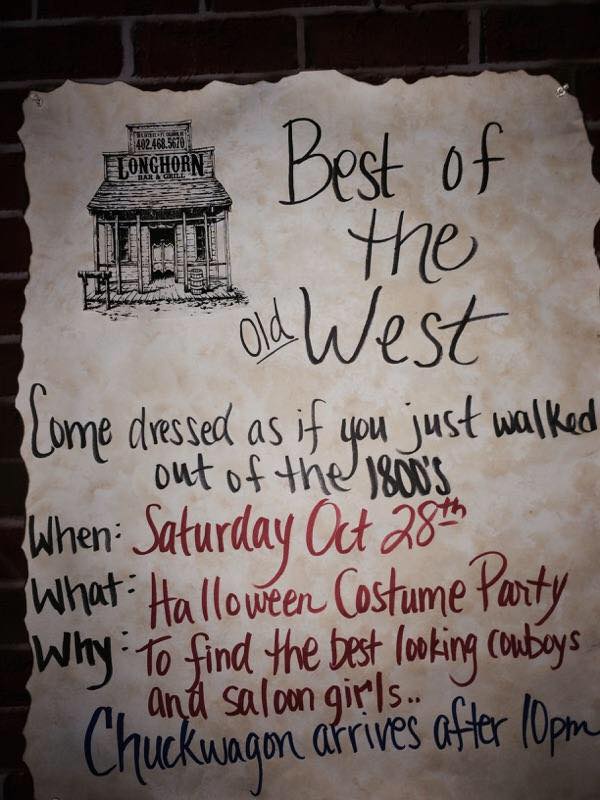 402.468.5670
LONGHORN
BAR & GRILL
Best of
the
Old West
Come dressed as if you just walked
out of the 1800's
When: Saturday Oct 28th
What: Halloween Costume Party
Why: To find the best looking cowboys
and saloon girls..
Chuckwagon arrives after 10pm